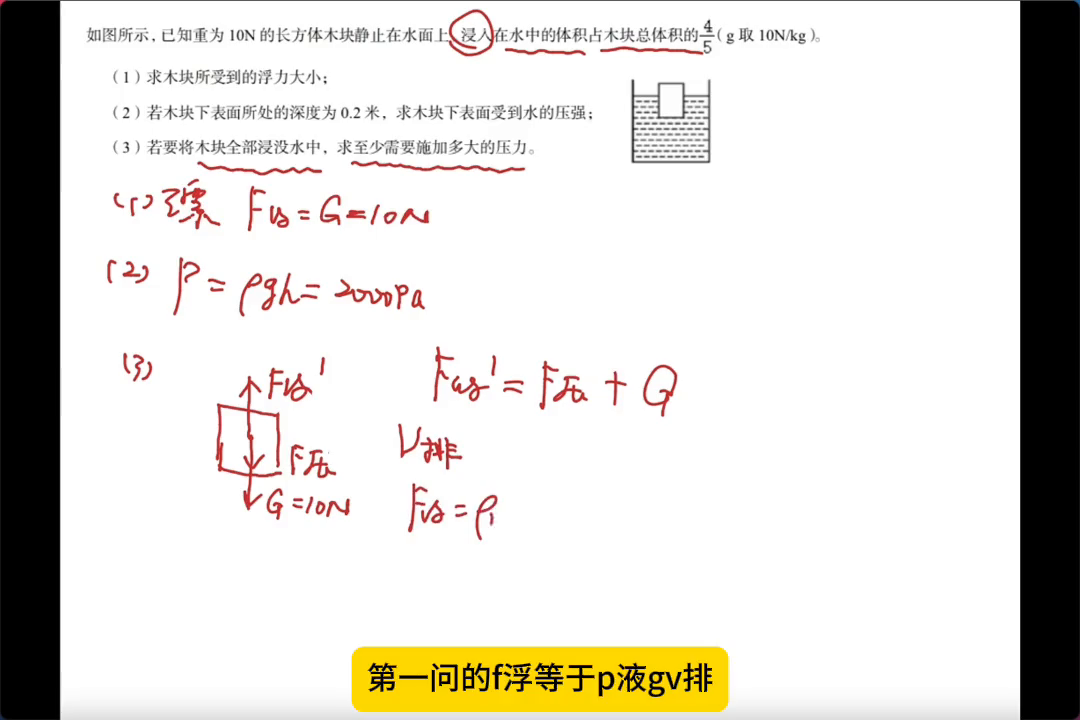 如图所示，已知重为 10N 的长方体木块静止在水面上，浸入在水中的体积占木块总体积的 4/5（g 取 10N/kg）。
（1）求木块所受到的浮力大小；
（2）若木块下表面所处的深度为 0.2 米，求木块下表面受到水的压强；
（3）若要将木块全部浸没水中，求至少需要施加多大的压力。
(1) 漂 F浮 = G = 10N
(2) P = ρgh = 2000Pa
(3)
F浮' F浮' = F压 + G
V排
F压
G = 10N F浮 = ρ
第一问的f浮等于p液gv排